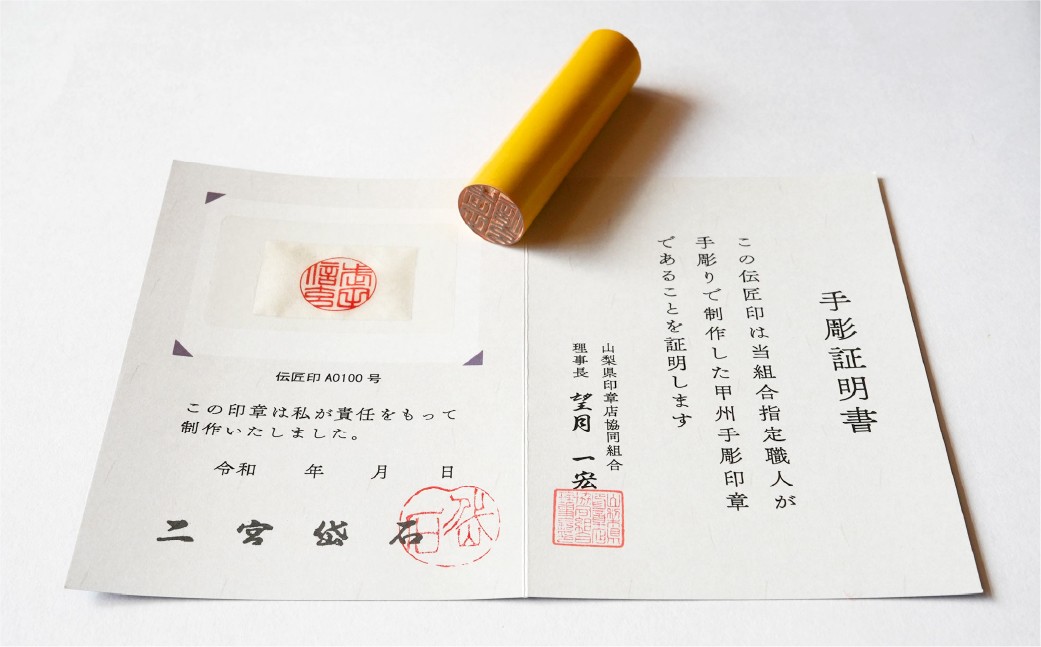 手彫証明書
この伝匠印は当組合指定職人が
手彫りで制作した甲州手彫印章
であることを証明します
山梨県印章店協同組合
理事長 望月 一宏
伝匠印 A0100 号
この印章は私が責任をもって
制作いたしました。
令和 年 月 日
二宮岱石